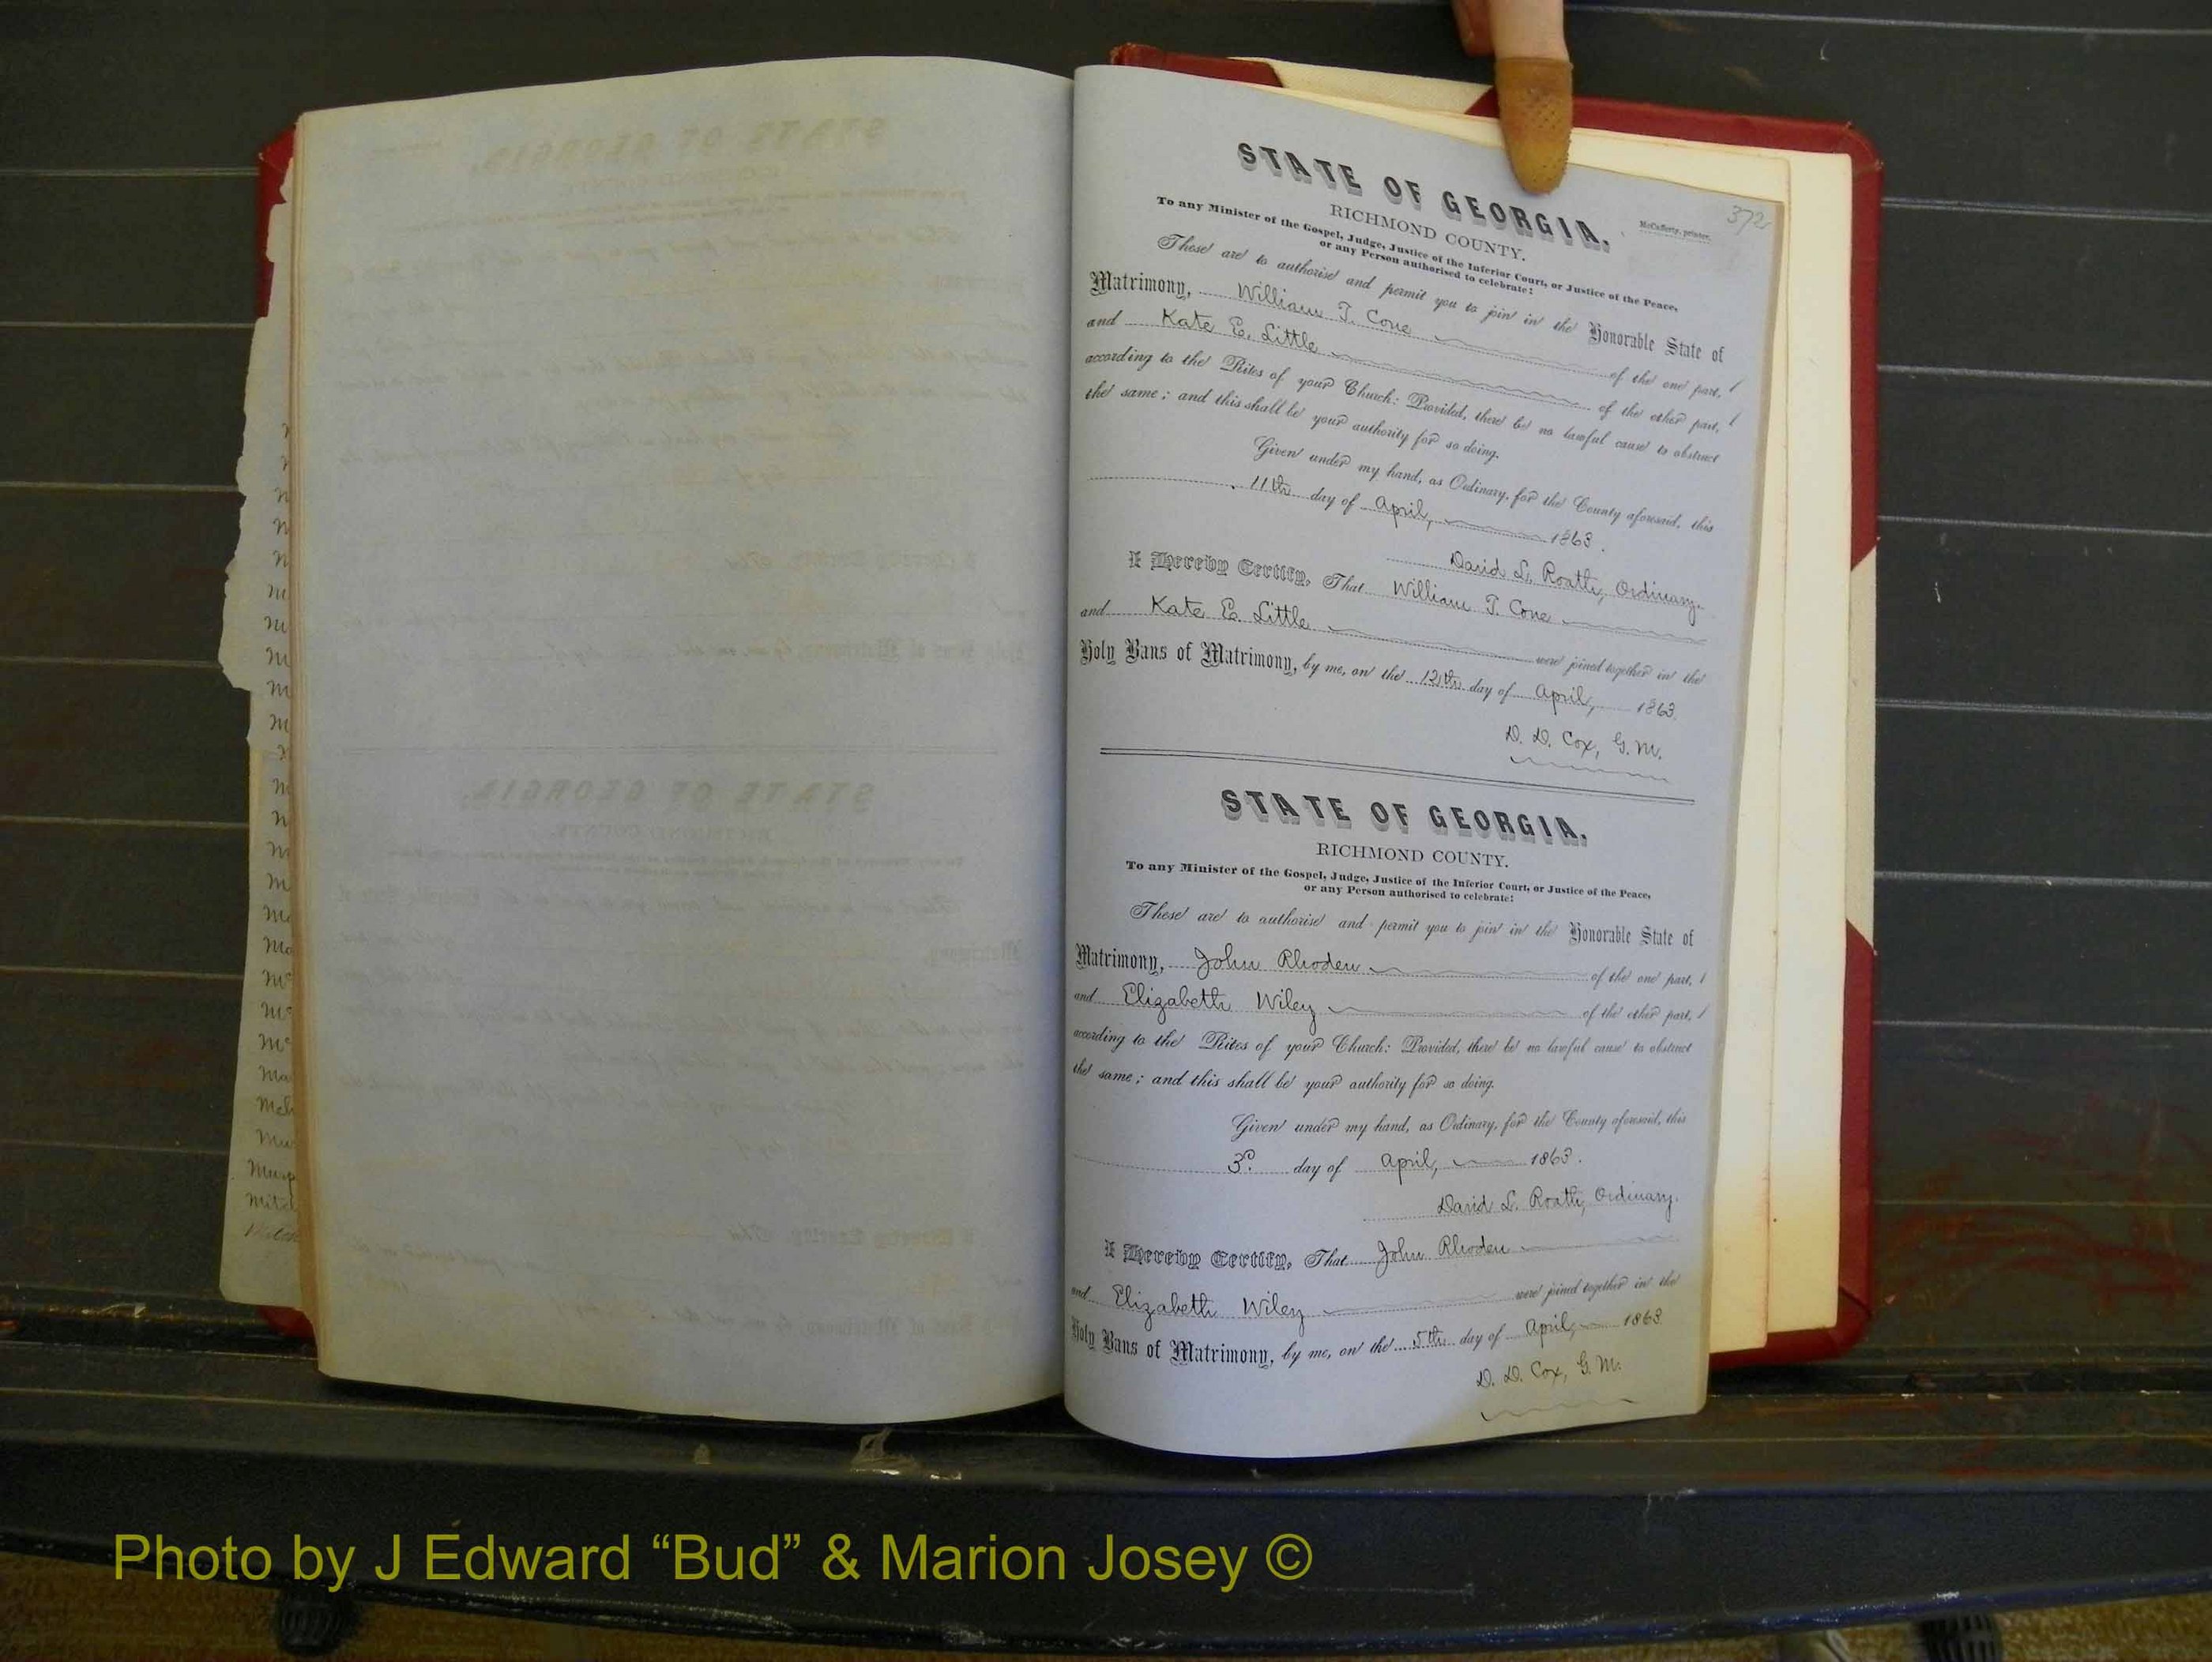 372
McCafferty, printer.
STATE OF GEORGIA.
RICHMOND COUNTY.
To any Minister of the Gospel, Judge, Justice of the Inferior Court, or Justice of the Peace,
or any Person authorised to celebrate:
These are to authorise and permit you to join in the Honorable State of
Matrimony, William T. Cone of the one part,
and Kate E. Little of the other part,
according to the Rites of your Church: Provided, there be no lawful cause to obstruct
the same; and this shall be your authority for so doing.
Given under my hand, as Ordinary, for the County aforesaid, this
11th day of April, 1863.
David L. Roath, Ordinary.
I Hereby Certify, That William T. Cone
and Kate E. Little were joined together in the
Holy Bans of Matrimony, by me, on the 12th day of April, 1863.
D. D. Cox, G. M.
STATE OF GEORGIA.
RICHMOND COUNTY.
To any Minister of the Gospel, Judge, Justice of the Inferior Court, or Justice of the Peace,
or any Person authorised to celebrate:
These are to authorise and permit you to join in the Honorable State of
Matrimony, John Rhoden of the one part,
and Elizabeth Wiley of the other part,
according to the Rites of your Church: Provided, there be no lawful cause to obstruct
the same; and this shall be your authority for so doing.
Given under my hand, as Ordinary, for the County aforesaid, this
3d. day of April, 1863.
David L. Roath, Ordinary.
I Hereby Certify, That John Rhoden
and Elizabeth Wiley were joined together in the
Holy Bans of Matrimony, by me, on the 5th day of April, 1863
D. D. Cox, G. M.
Photo by J Edward “Bud” & Marion Josey ©